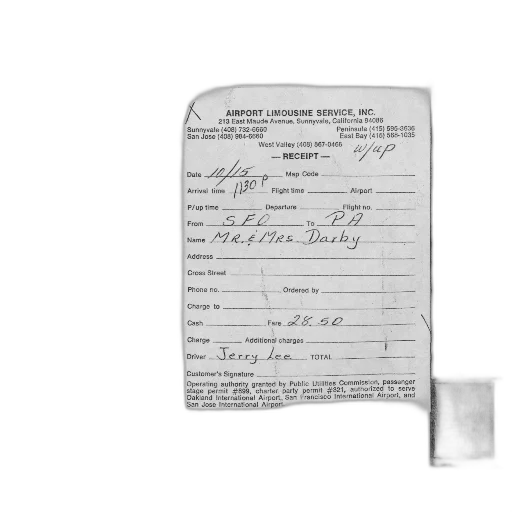 AIRPORT LIMOUSINE SERVICE, INC.
213 East Maude Avenue, Sunnyvale, California 94086
Sunnyvale (408) 732-6660 Peninsula (415) 595-3636
San Jose (408) 984-6660 East Bay (415) 568-1035
West Valley (408) 867-0466
w/up
— RECEIPT —
Date 10/15 Map Code
Arrival time 1130 P Flight time Airport
P/up time Departure Flight no.
From SFO To PA
Name MR. & MRS. Darby
Address
Cross Street
Phone no. Ordered by
Charge to
Cash Fare 28.50
Charge Additional charges
Driver Jerry Lee TOTAL
Customer's Signature
Operating authority granted by Public Utilities Commission, passenger
stage permit #899, charter party permit #321, authorized to serve
Oakland International Airport, San Francisco International Airport, and
San Jose International Airport.